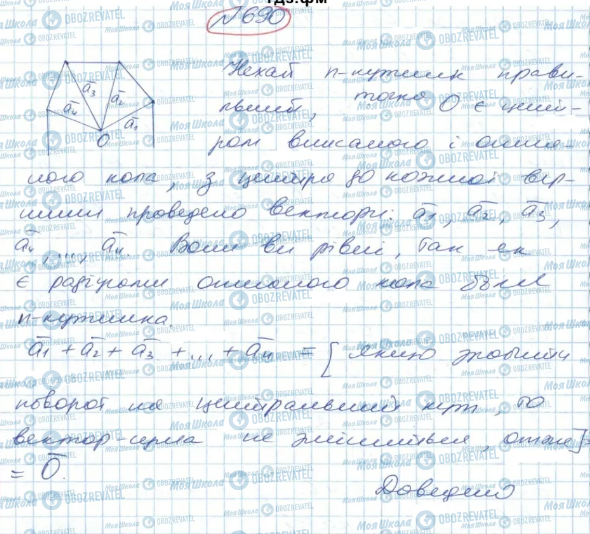 гдз.фм
№690
Нехай n-кутник прави-
льний, точка О є цент-
ром вписаного і описа-
ного кола, з центра до кожної вер-
шини проведено вектори: a₁, a₂, a₃,
a₄, ..., aₙ. Вони всі рівні, так як
є радіусами описаного кола
n-кутника.
a₁ + a₂ + a₃ + ... + aₙ = [якщо зробити
поворот на центральний кут, то
вектор-сума не зміниться, отже] =
= 0.
Доведено
a₄ a₃ a₂ a₁
О